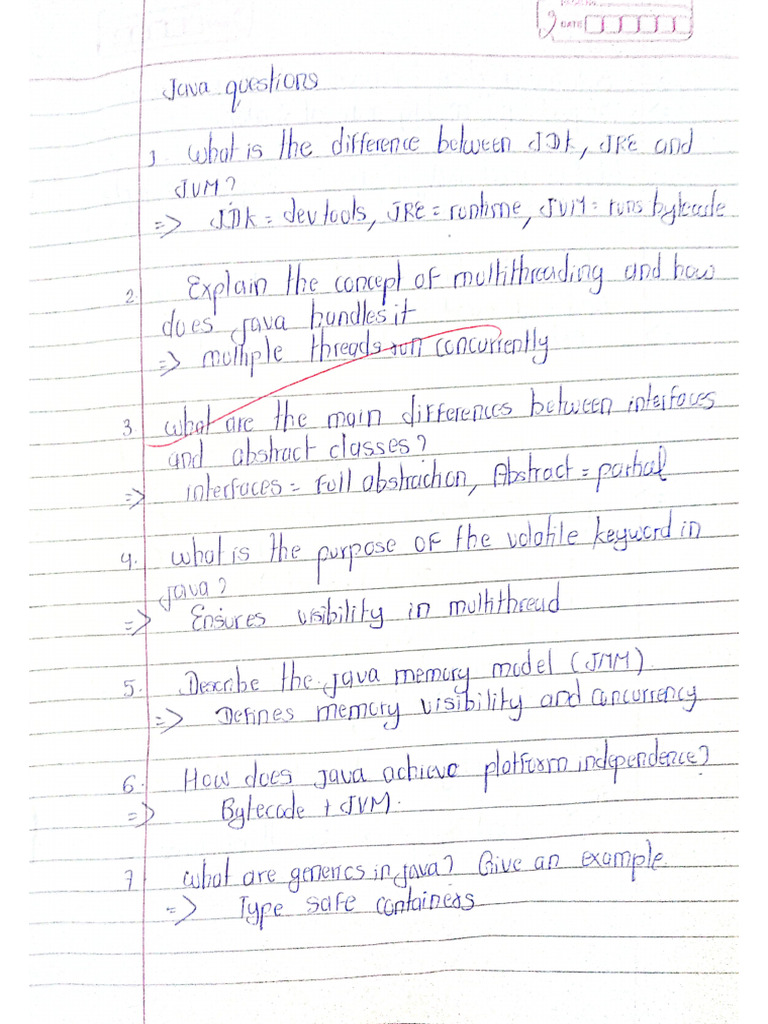 DATE
Java questions
1. What is the difference between JDK, JRE and
JVM?
=> JDK = dev tools, JRE = runtime, JVM = runs bytecode
2. Explain the concept of multithreading and how
does java handles it
=> multiple threads run concurrently
3. What are the main differences between interfaces
and abstract classes?
=> interfaces = Full abstraction, Abstract = partial
4. What is the purpose of the volatile keyword in
java?
=> Ensures visibility in multithread
5. Describe the java memory model (JMM)
=> Defines memory visibility and concurrency
6. How does java achieve platform independence?
=> Bytecode + JVM.
7 What are generics in java? Give an example.
=> Type safe containers